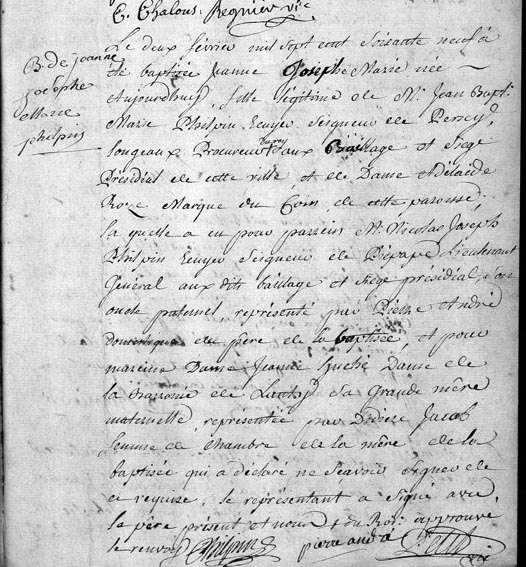 E. Chalons Regnier vic
B. de jeanne
josephe
Marie
philpin
Le deux février mil sept cent soixante neuf à
été baptisée Jeanne Josephe Marie née
Aujourdhuy, fille légitime de Mr. Jean Bapt.
Marie Philpin Ecuyer Seigneur de Percey
Longeaux Procureur du roy aux Bailliage et Siège
Présidial de cette ville, et de Dame Adélaïde
Roze Marque du Coin de cette paroisse
la quelle a eu pour parrein Mr. Nicolas Joseph
Philpin Ecuyer Seigneur de Piépape Lieutenant
Général aux dits bailliage et siège présidial, son
oncle paternel, représenté par Pierre André
Domestique du père de la baptisée, et pour
mareine Dame Jeanne Dame de
la Baronnie de Lanty sa Grande mère
maternelle, représentée par Didière Jacob
femme de Chambre de la mère de la
baptisée qui a déclaré ne sçavoir signer de
ce requise, le représentant a signé avec
le père présent et nous + du Roy: approuvé
le renvoy Philpin pierre andré Petit
vic